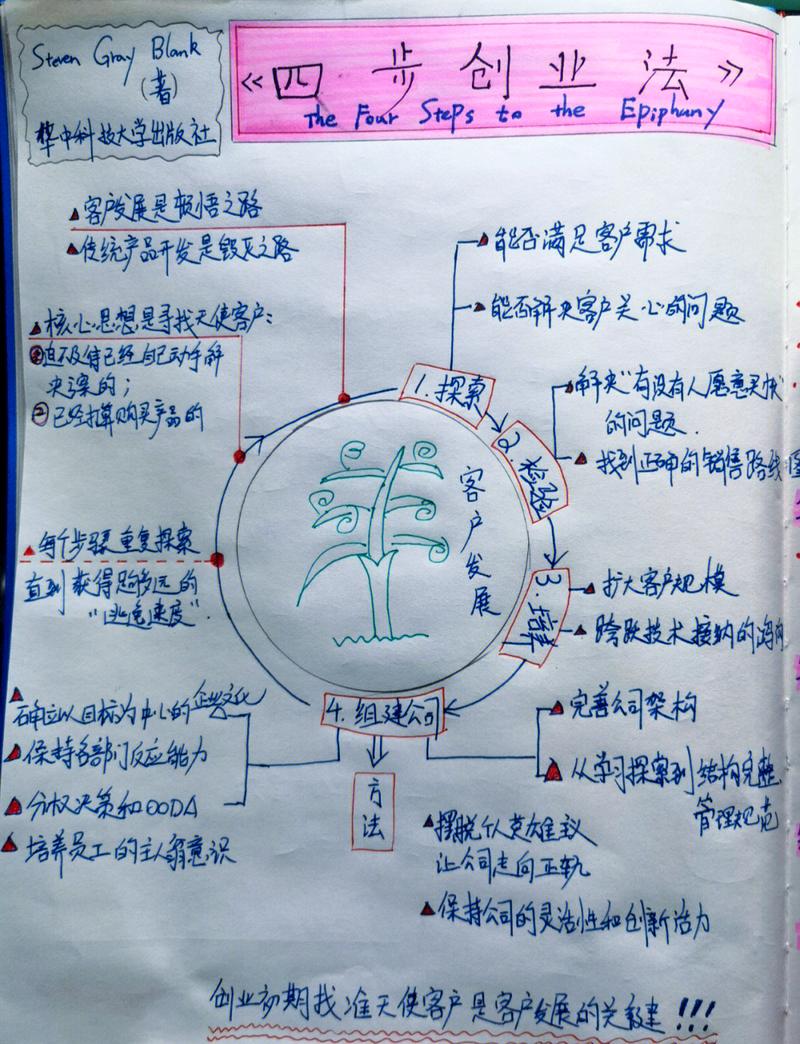 Steven Gray Blank
(著)
华中科技大学出版社
《四步创业法》
The Four Steps to the Epiphany
客户发展是顿悟之路
传统产品开发是毁灭之路
核心思想是寻找天使客户:
①迫不及待已经自己动手解
决方案的;
②已经打算购买产品的
每个步骤重复探索
直到获得足够多远的
"逃逸速度".
确立以目标为中心的企业文化
保持各部门反应能力
分权决策和OODA
培养员工的主人翁意识
客户发展
1.探索
能否满足客户需求
能否解决客户关心的问题
2.检验
解决"有没有人愿意买快"
的问题.
找到正确的销售路线图
3.培养
扩大客户规模
跨跃技术接纳的鸿沟
4.组建公司
完善公司架构
从学习探索到结构完整、
管理规范
方法
摆脱个人英雄主义
让公司走向正轨
保持公司的灵活性和创新活力
创业初期找准天使客户是客户发展的关键!!!